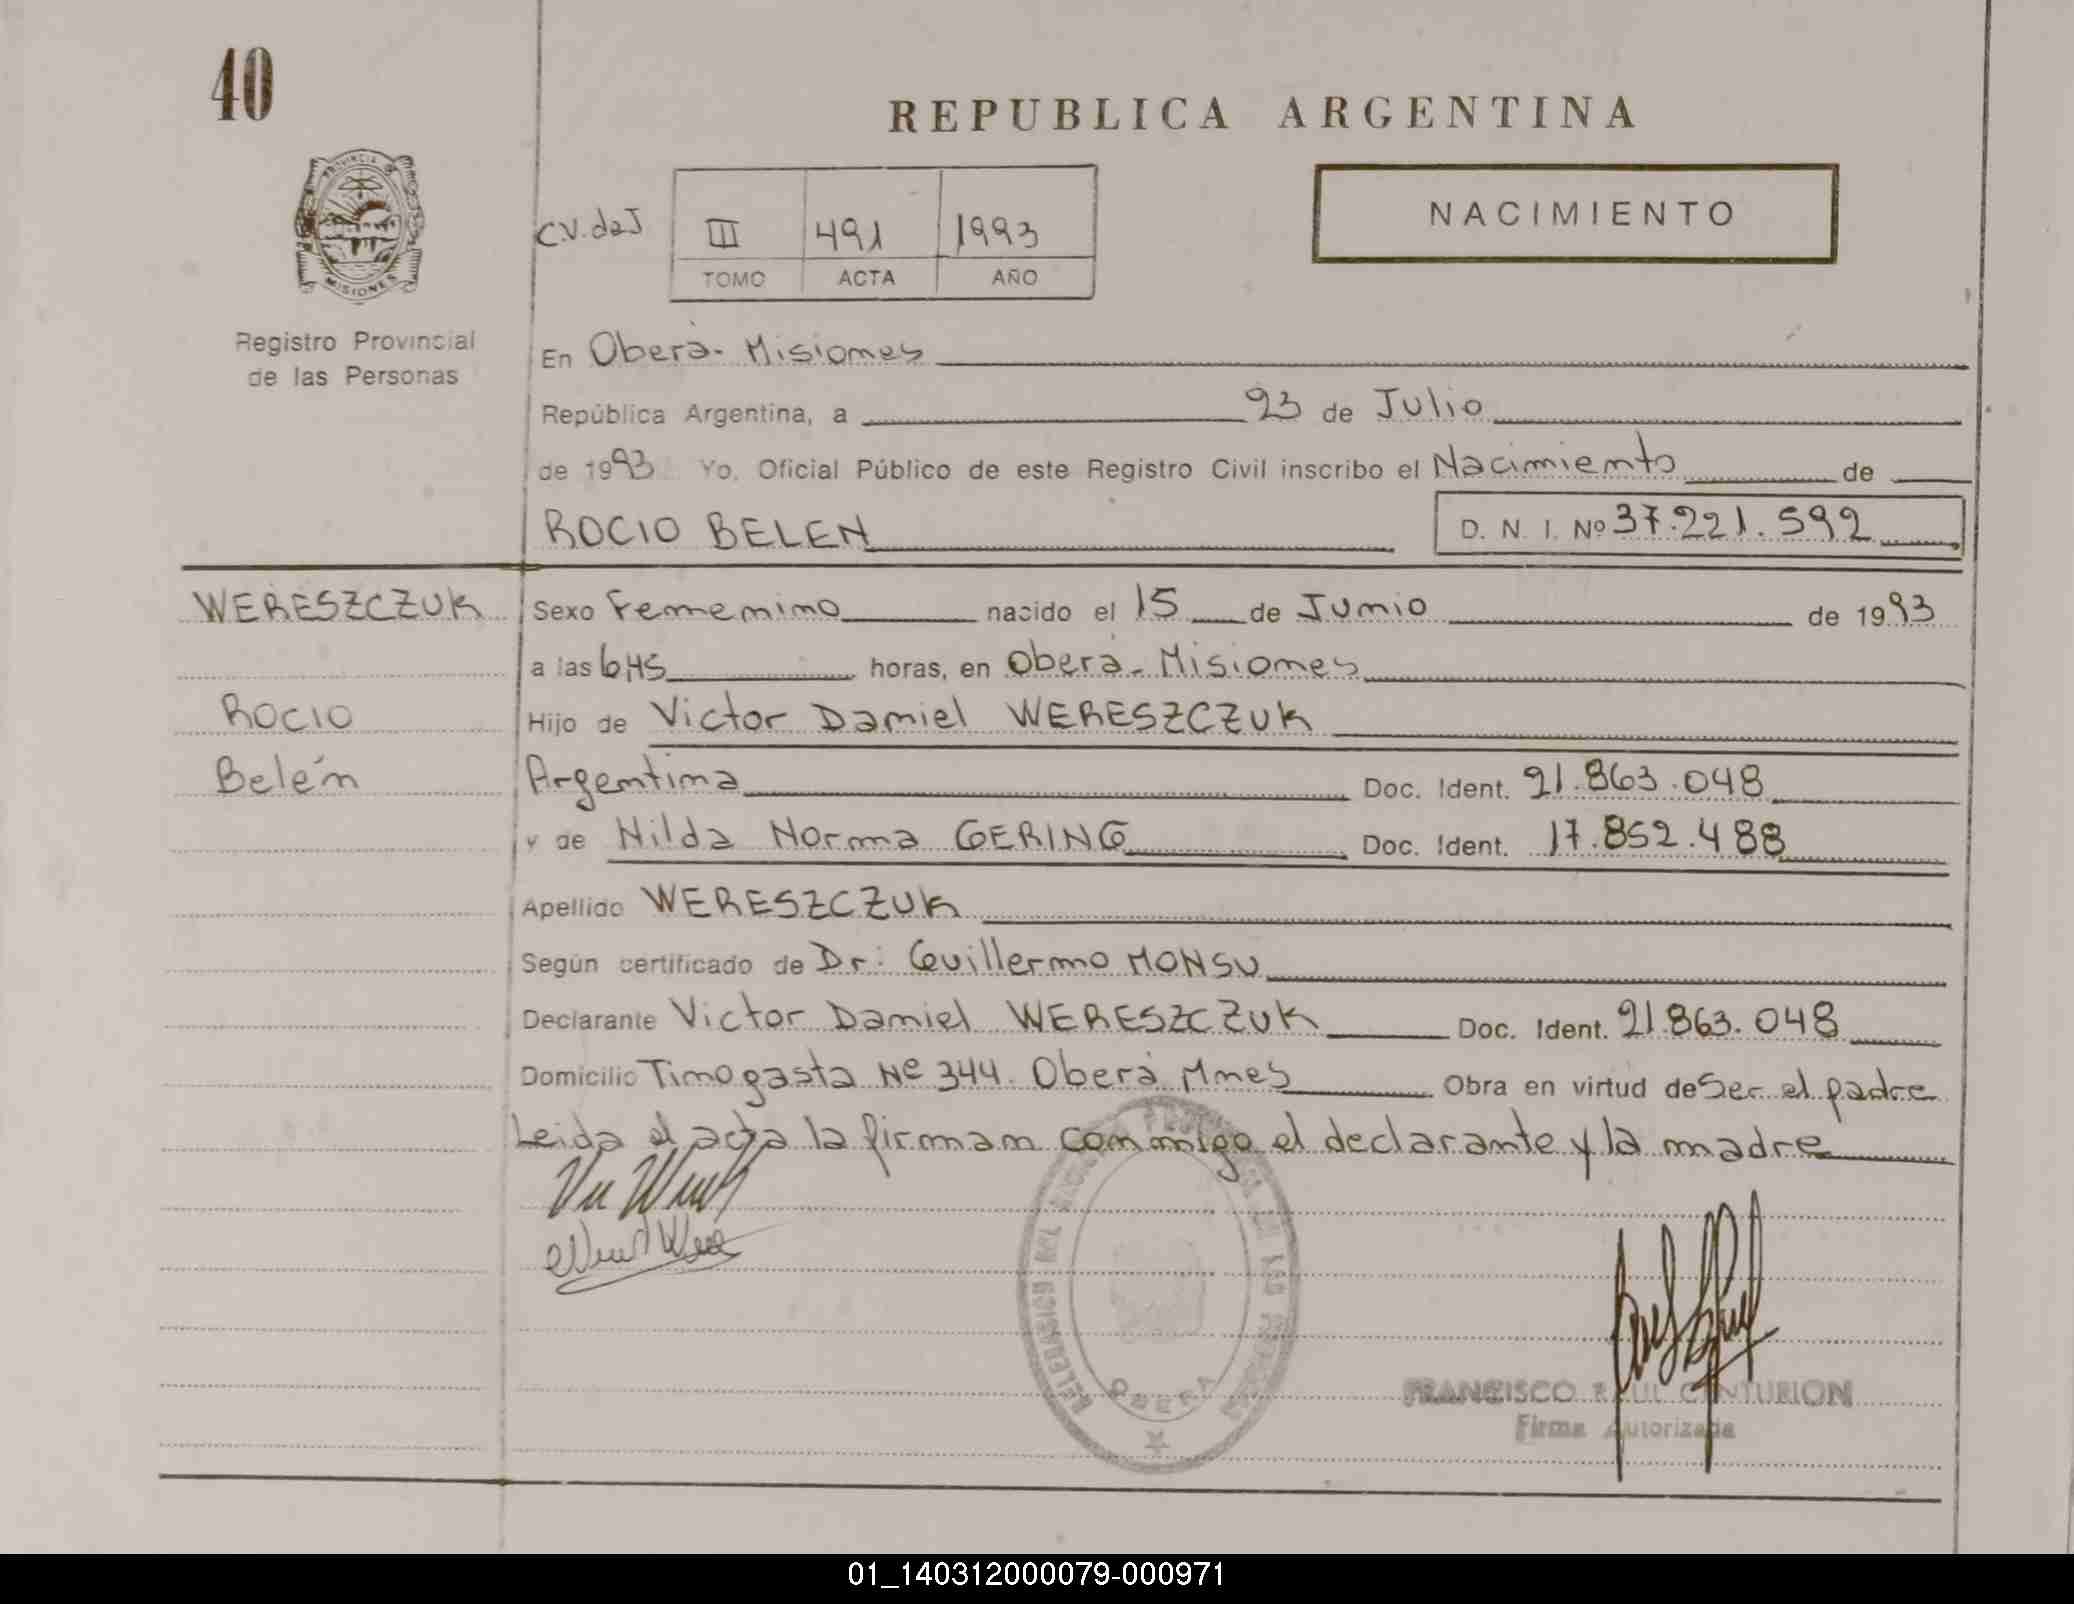 40
REPUBLICA ARGENTINA
PROVINCIA
MISIONES
Registro Provincial
de las Personas
C.V.daJ
III 491 1993
TOMO ACTA AÑO
NACIMIENTO
En Oberá - Misiones
República Argentina, a 23 de Julio
de 1993 Yo, Oficial Público de este Registro Civil inscribo el Nacimiento de
ROCIO BELEN D. N. I. Nº 37.221.592
WERESZCZUK
Rocio
Belén
Sexo Femenino nacido el 15 de Junio de 1993
a las 6,45 horas, en Oberá - Misiones
Hijo de Victor Daniel WERESZCZUK
Argentina Doc. Ident. 21.863.048
y de Nilda Norma GERING Doc. Ident. 17.852.488
Apellido WERESZCZUK
Según certificado de Dr: Guillermo MONSU
Declarante Victor Daniel WERESZCZUK Doc. Ident. 21.863.048
Domicilio Tinogasta Nº 344. Oberá Mnes Obra en virtud de Ser el padre
Leida el acta la firman conmigo el declarante y la madre
OBERA
FRANCISCO RAUL CENTURION
Firma Autorizada
01_140312000079-000971